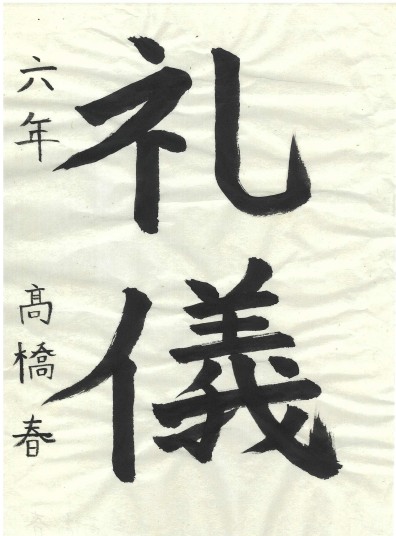 礼儀
六年 髙橋春